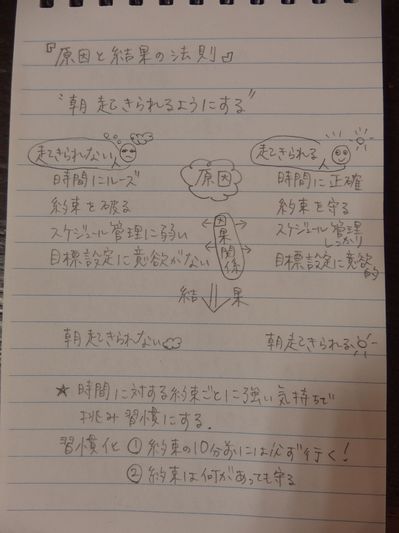 『原因と結果の法則』
"朝起きられるようにする"
起きられない
原因
起きられる
時間にルーズ
時間に正確
約束を破る
約束を守る
スケジュール管理に弱い
スケジュール管理
しっかり
目標設定に意欲がない
目標設定に意欲
的
因果関係
結果
朝起きられない
朝起きられる
★ 時間に対する約束ごとに強い気持ちで
挑み習慣にする.
習慣化 ① 約束の10分前には必ず行く!
② 約束は何があっても守る